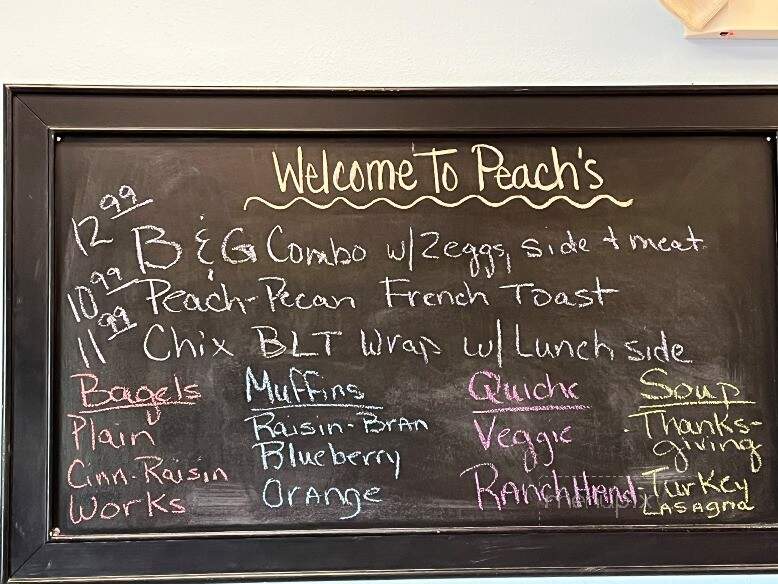 Welcome To Peach's
12.99 B & G Combo w/2eggs, side + meat
10.99 Peach-Pecan French Toast
11.99 Chix BLT Wrap w/ Lunch side
Bagels
Plain
Cinn-Raisin
Works
Muffins
Raisin-Bran
Blueberry
Orange
Quiche
Veggie
RanchHand
Soup
-Thanks-
giving
-Turkey
Lasagna